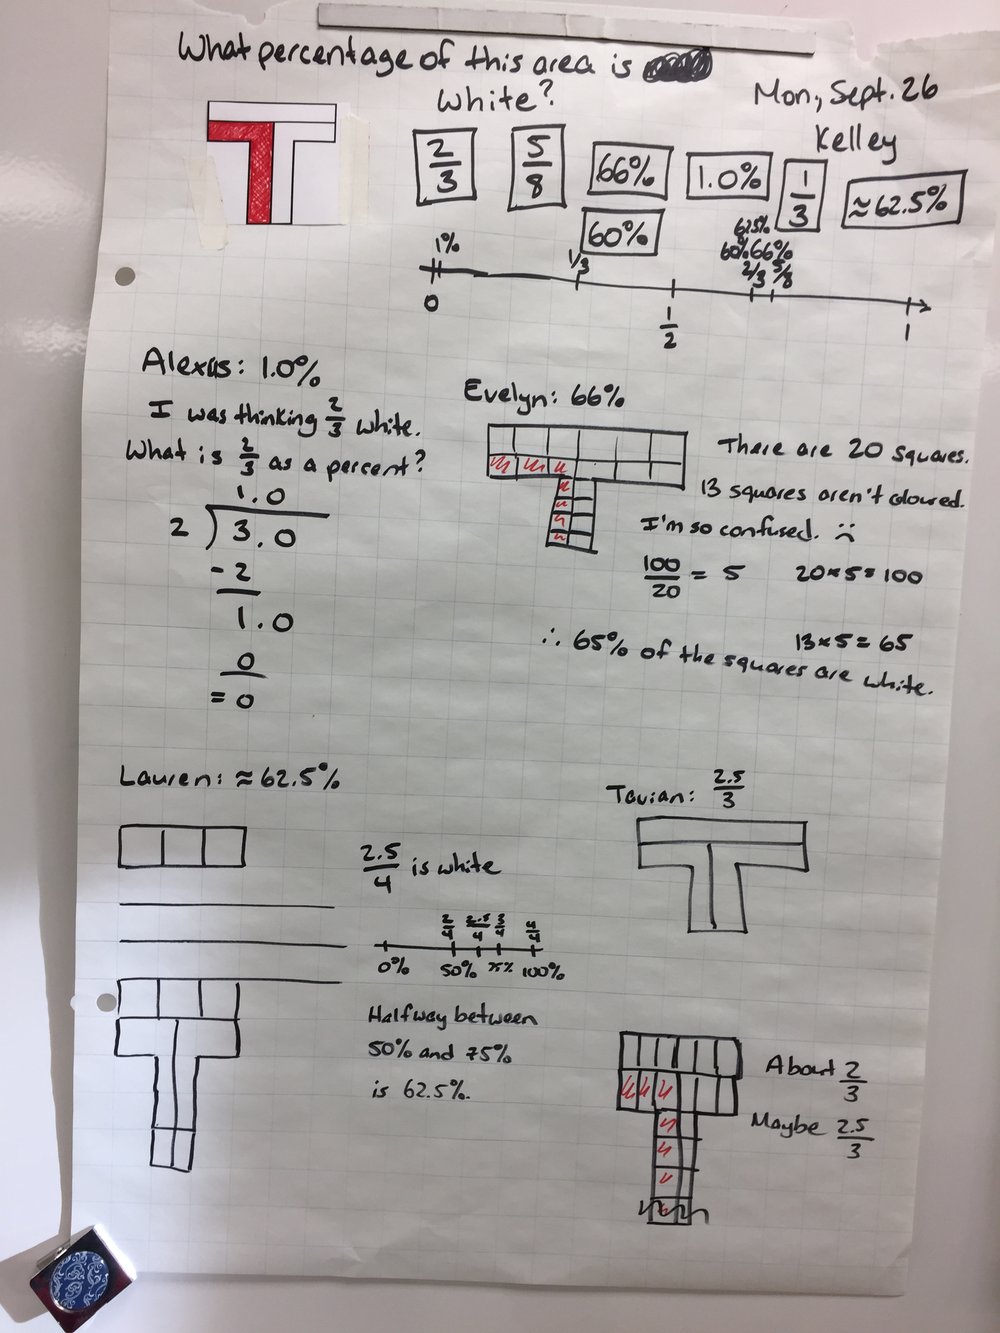 What percentage of this area is
white?
Mon, Sept. 26
Kelley
2/3
5/8
66%
1.0%
1/3
≈62.5%
60%
62.5%
60% 66%
1%
1/3
2/3 5/8
0
1/2
1
Alexus: 1.0%
I was thinking 2/3 white.
What is 2/3 as a percent?
1.0
2 ) 3.0
- 2
1.0
0
= 0
Evelyn: 66%
There are 20 squares.
13 squares aren't coloured.
I'm so confused. :(
100/20 = 5 20×5=100
13×5=65
∴ 65% of the squares are white.
Lauren: ≈62.5%
2.5/4 is white
2/4 2.5/4 3/4 4/4
0% 50% 75% 100%
Halfway between
50% and 75%
is 62.5%.
Tavian: 2.5/3
About 2/3
Maybe 2.5/3